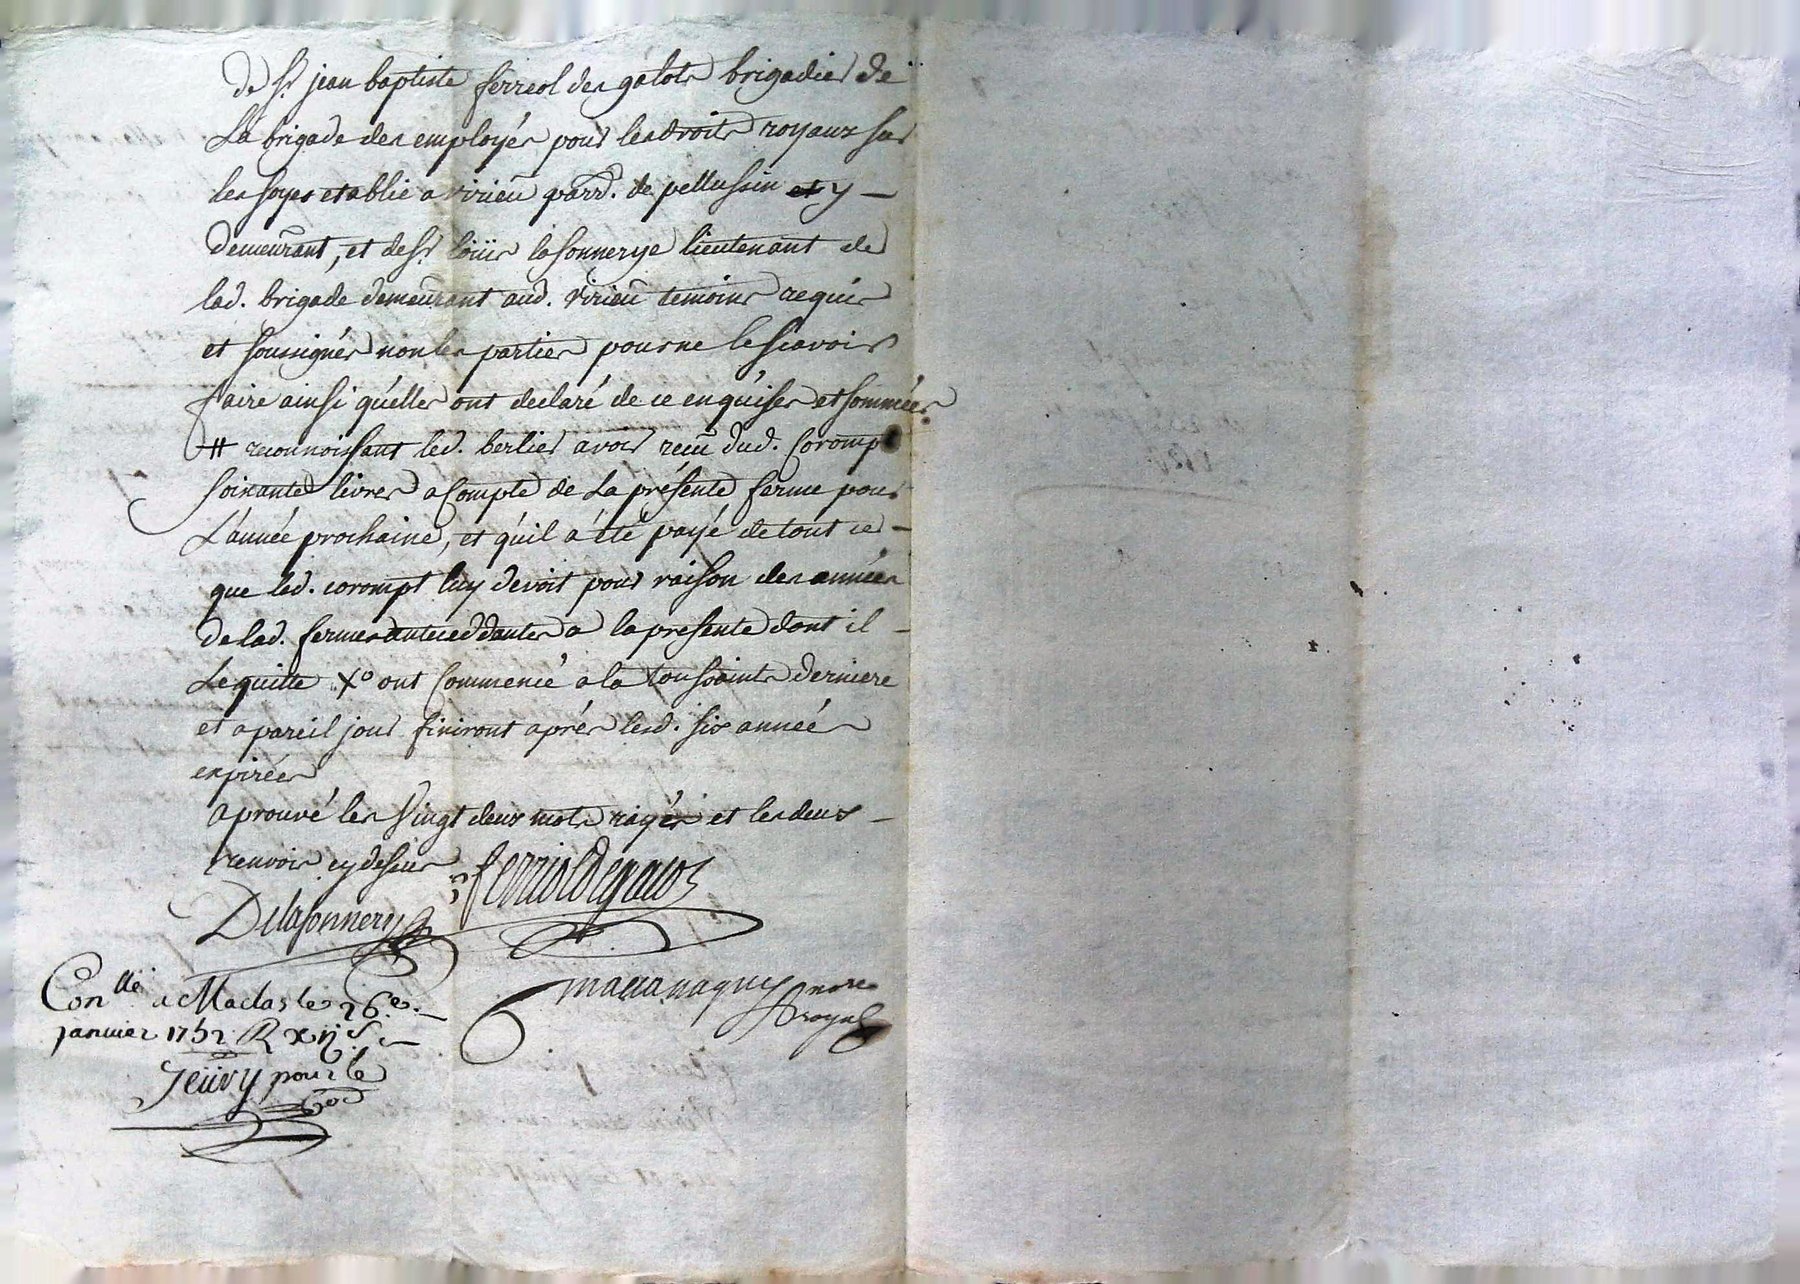 de Sr. jean baptiste ferreol des galots brigadier de
La brigade des employés pour les droits royaux sur
les soyes establie a virieu parr. de pellussin et y
demeurant, et de Sr. loüis lasonnerye lieutenant de
lad. brigade demeurant aud. virieu temoins requis
et soussignés non les parties pour ne le sçavoir
faire ainsi qu'elles ont declaré de ce enquises et sommées
# reconnoissant led. berlier avoir recu dud. Corompt
soixante livres a Compte de La présente ferme pour
L'année prochaine, et qu'il a été payé de tout ce
que led. corompt luy devoit pour raison des années
de lad. ferme anteceddantes a la presente dont il
Le quitte Xo ont Commencé a la toussaints derniere
et a pareil jour finiront aprés lesd. six année
expirées
aprouvé les vingt deux mots rayés et les deux
renvois cy dessus
ferrioldegalos
Delasonnery
Conllé a Maclas le 26e.
janvier 1752 R xij s.
Jeüvy pour le
notre
royal